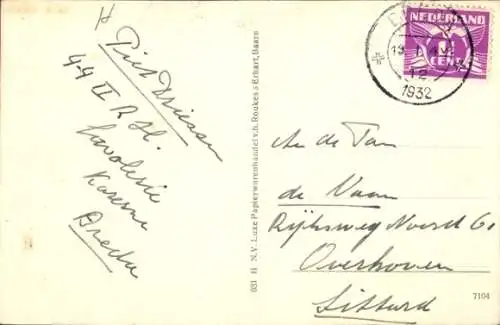 H
Piet Driessen
44 II R.H.
Cavalerie
Kazerne
Breda
031 H N.V. Luxe Papierwarenhandel v.h. Roukes & Erhart, Baarn
NEDERLAND
CENT
12
1932
An de Fam
de Vaan
Rijksweg Noord 61
Overhoven
Sittard
7104